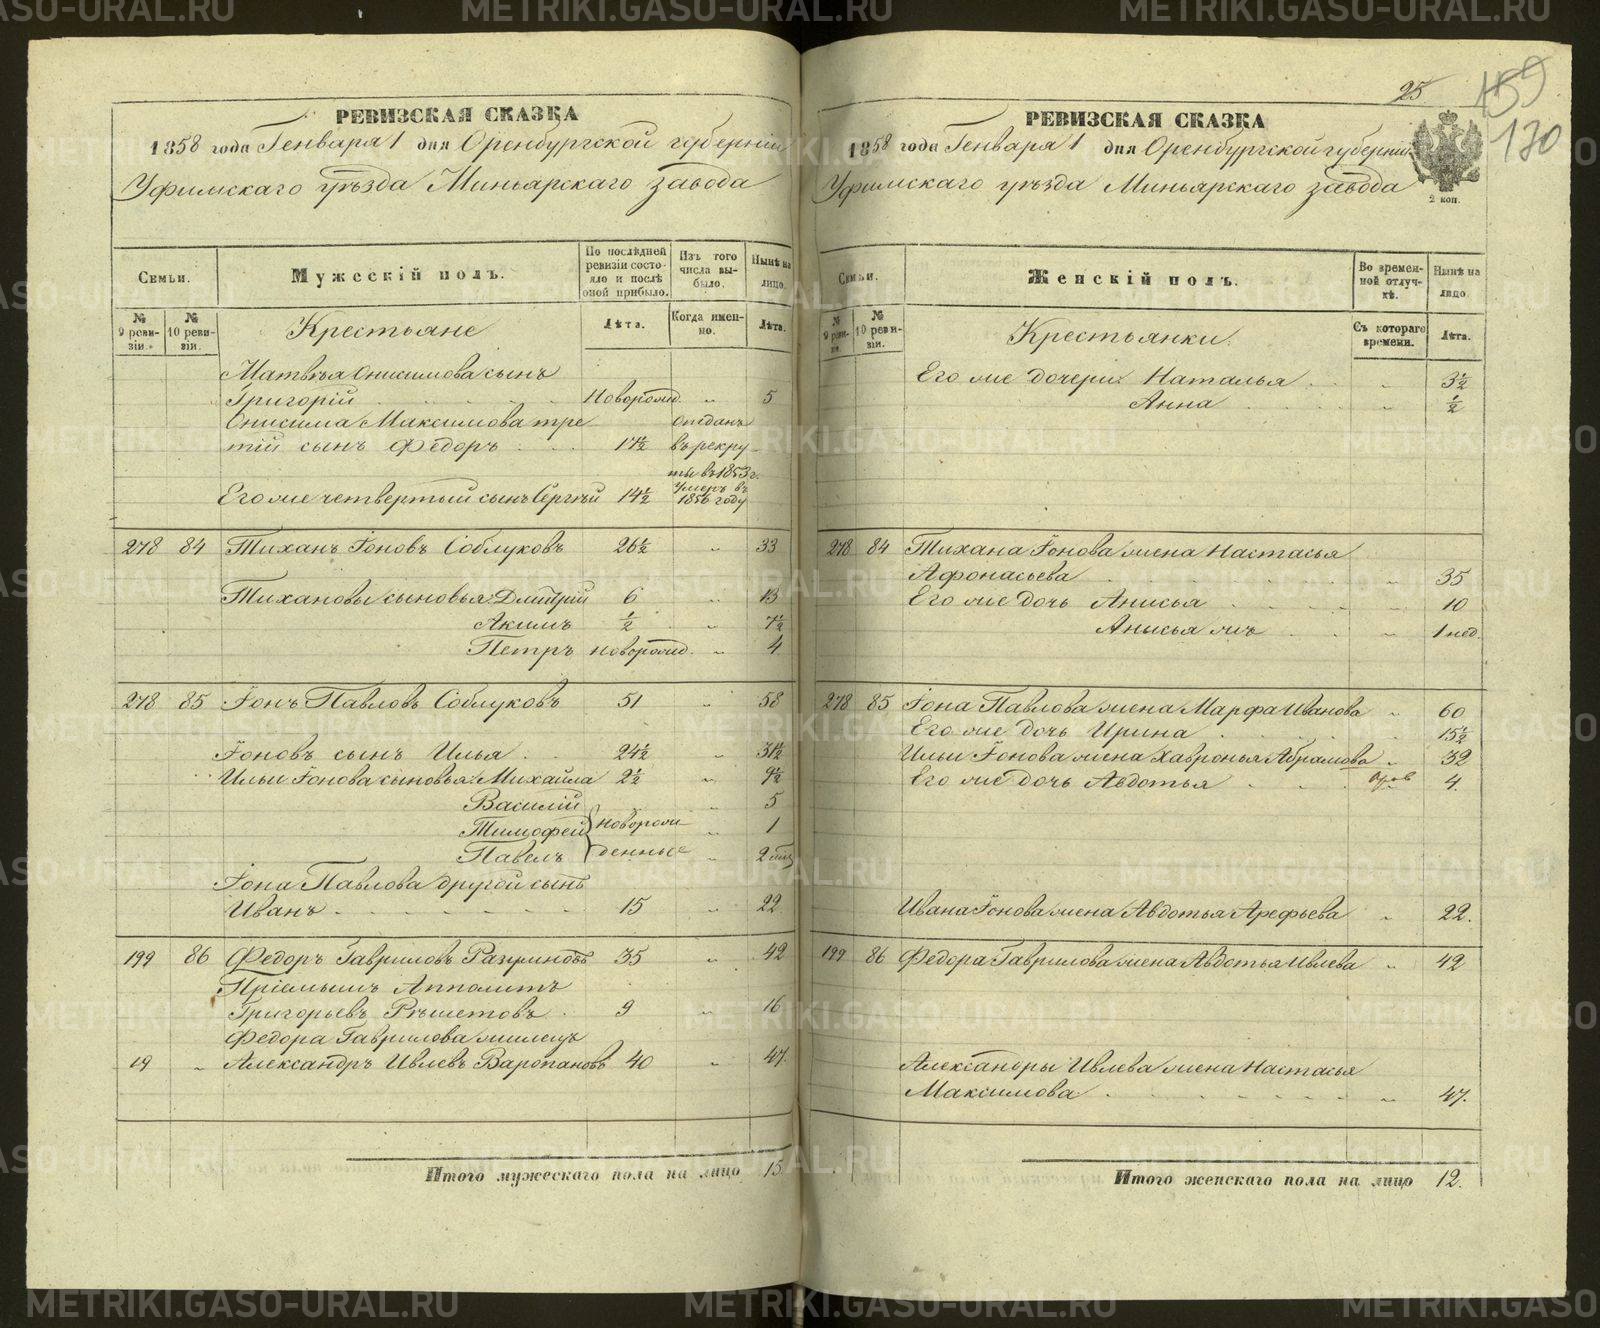 РЕВИЗСКАЯ СКАЗКА
1858 года Генваря 1 дня Оренбургской губерніи
Уфимскаго уѣзда Миньярскаго завода
Семьи.
Мужескій полъ.
По послѣдней ревизіи состояло и послѣ оной прибыло.
Изъ того числа выбыло.
Нынѣ на лицо.
№ 9 ревизіи.
№ 10 ревизіи.
Крестьяне
Лѣта.
Когда именно.
Лѣта.
Матвѣя Онисимова сынъ
Григорій Новорожд. " 5
Онисима Максимова тре отданъ
тій сынъ Федоръ 17½ въ рекру
ты въ 1853 г.
Его же четвертый сынъ Сергѣй 14½ Умеръ въ 1856 году
278 84 Тиханъ Іоновъ Соблуковъ 26½ " 33
Тихановы сыновья Дмитрій 6 " 13
Акимъ ½ " 7½
Петръ новорожд. " 4
278 85 Іонъ Павловъ Соблуковъ 51 " 58
Іоновъ сынъ Илья 24½ " 31½
Ильи Іонова сыновья Михайла 2½ " 9½
Василій " 5
Тимофей новорож " 1
Павелъ денные " 2 мѣс
Іона Павлова другой сынъ
Иванъ 15 " 22
199 86 Федоръ Гавриловъ 35 " 42
Пріемышъ Апполитъ
Григорьевъ Рѣшетовъ 9 " 16
Федора Гаврилова жилецъ
19 " Александръ Ивлевъ Варопановъ 40 " 47.
Итого мужескаго пола на лицо 15
25
159
130
РЕВИЗСКАЯ СКАЗКА
1858 года Генваря 1 дня Оренбургской губерніи
Уфимскаго уѣзда Миньярскаго завода
2 коп.
Семьи.
Женскій полъ.
Во временной отлучкѣ.
Нынѣ на лицо.
№ 9 ревизіи.
№ 10 ревизіи.
Крестьянки.
Съ котораго времени.
Лѣта.
Его же дочери Наталья " 3½
Анна " ½
278 84 Тихана Іонова жена Настасья
Афонасьева " 35
Его же дочь Анисья " 10
Анисья жъ " 1 нед.
278 85 Іона Павлова жена Марфа Иванова " 60
Его же дочь Ирина 15½
Ильи Іонова жена Хавронья Абрамова " 32
Его же дочь Авдотья " 4.
Ивана Іонова жена Авдотья Арефьева " 22.
199 86 Федора Гаврилова жена Авдотья Ивлева " 42
Александры Ивлева жена Настасья
Максимова " 47.
Итого женскаго пола на лицо 12.
METRIKI.GASO-URAL.RU